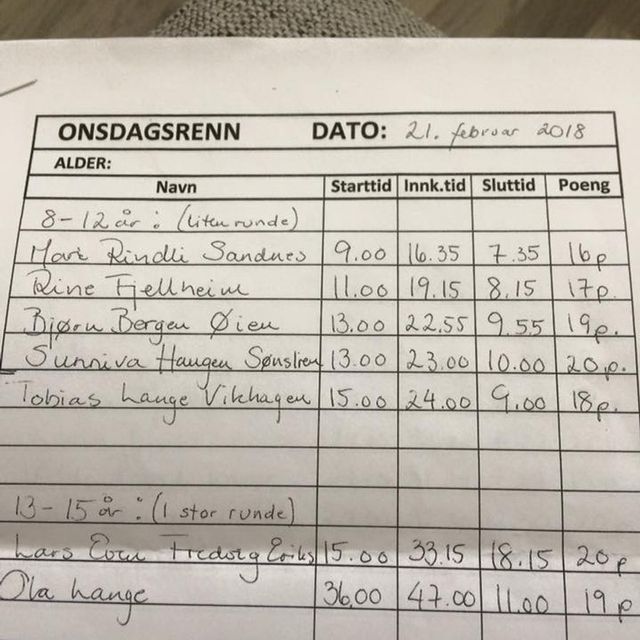 ONSDAGSRENN DATO: 21. februar 2018
ALDER:
Navn Starttid Innk.tid Sluttid Poeng
8-12 år: (liten runde)
Rindli Sandnes 9.00 16.35 7.35 16p
Fjellheim 11.00 19.15 8.15 17p.
Bjørn Bergen Øien 13.00 22.55 9.55 19p.
Sunniva Haugen 13.00 23.00 10.00 20p.
Tobias Lange Vikhagen 15.00 24.00 9.00 18p.
13-15 år: (1 stor runde)
Lars Even 15.00 33.15 18.15 20p
Ola Lange 36.00 47.00 11.00 19p